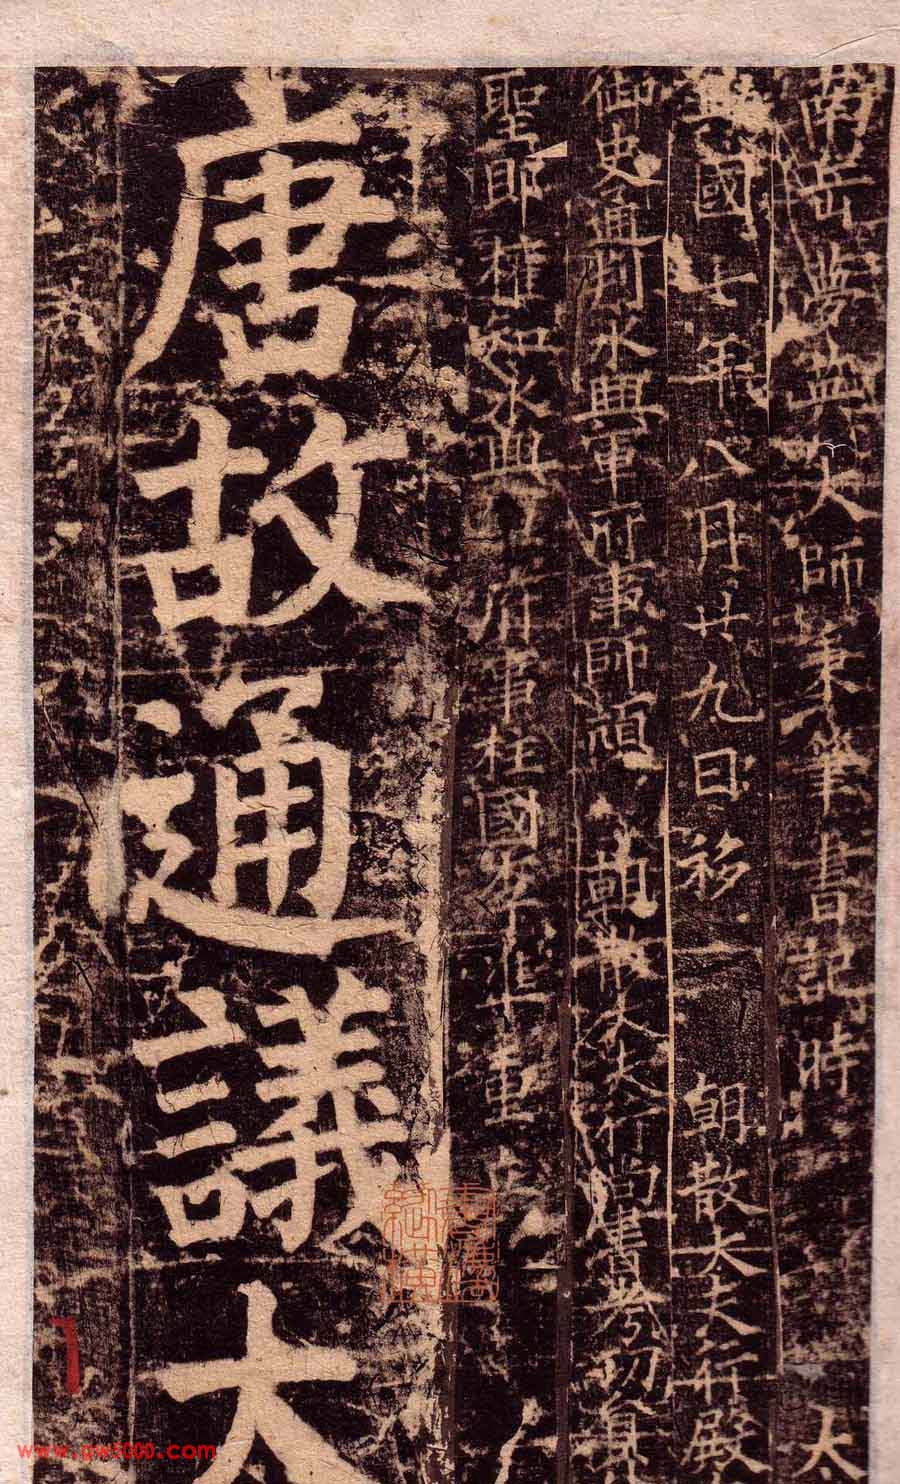 南岳夢英大師秉筆書記時 大
國七年八月廿九日移 朝散大夫行殿
御史通判永興軍府事師頏 朝散大夫行尚書考功員
聖郎權知永興軍府事柱國李准重
唐故通議大
1
www.gw5000.com